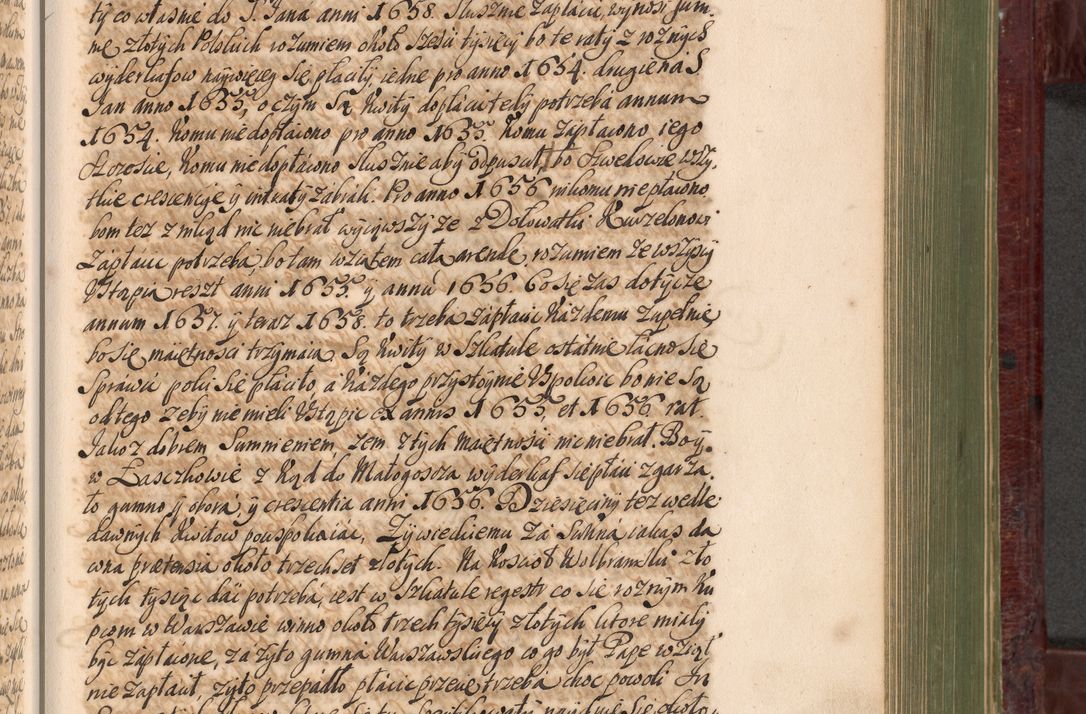 ty co właśnie do S. Jana anni 1658. Słusznie zapłacic, wynosi sum
me złotych Polskich rozumiem około sześci tysięcy bo te raty z rożnych
wyderkafow naywięcey się płaciły iedne pro anno 1654. drugie na S.
Jan anno 1655, o czym są kwity dopłacic tedy potrzeba annum
1654. komu nie dopłacono pro anno 1655. komu zapłacono, iego
szczoscie, komu nie dopłacono słusznie aby odpuscił, bo Szwedowie wszy,
tkie crescencye y intraty zabrali. Pro anno 1656 nikomu nie płacono
bom tez z nikąd nic nie brał wyiąwszy ze z Dołowatki Kurzelonowi
zapłacic potrzeba, bo tam wziąłem całą arendę rozumiem ze wszyscy
Vstąpią reszt anni 1655. y annu 1656. Co się zas dotycze
annum 1657. y teraz 1658. to trzeba zapłacic kazdemu zupełnie,
bo się maiętnosci trzymaią. Są kwity w szkatule ostatnie łacno się
sprawic poki się płaciło, a kazdego przystoynie Vspokoic bo nie są
od tego zeby nie mieli Vstąpic ex annis 1655, et 1656 rat.
Jakoz dobrem sumnieniem, zem z tych maiętnosci nic nie brał. Boy,
w Łasczkowie z kąd do Małogoscza wyderkaf się płaci zgorza,
ło gumno y obora y crescentia anni 1656. Dziesięciny tez wedle
dawnych kwitow pouspokoiac, Zywieckiemu za sukna iakas da
wna praetensia około trzechset złotych. Na Kosciół Wolbramski zło
tych tysiąc dac potrzeba, iest w szkatule regestr co się roznym ku
pcom w Warszawie winno około trzech tysięcy złotych ktore miały
byc zapłacone, za zyto gumna Warszawskiego co go był Pape wziął
nie zapłacił, zyto przepadło płacic przecię trzeba choc powoli In